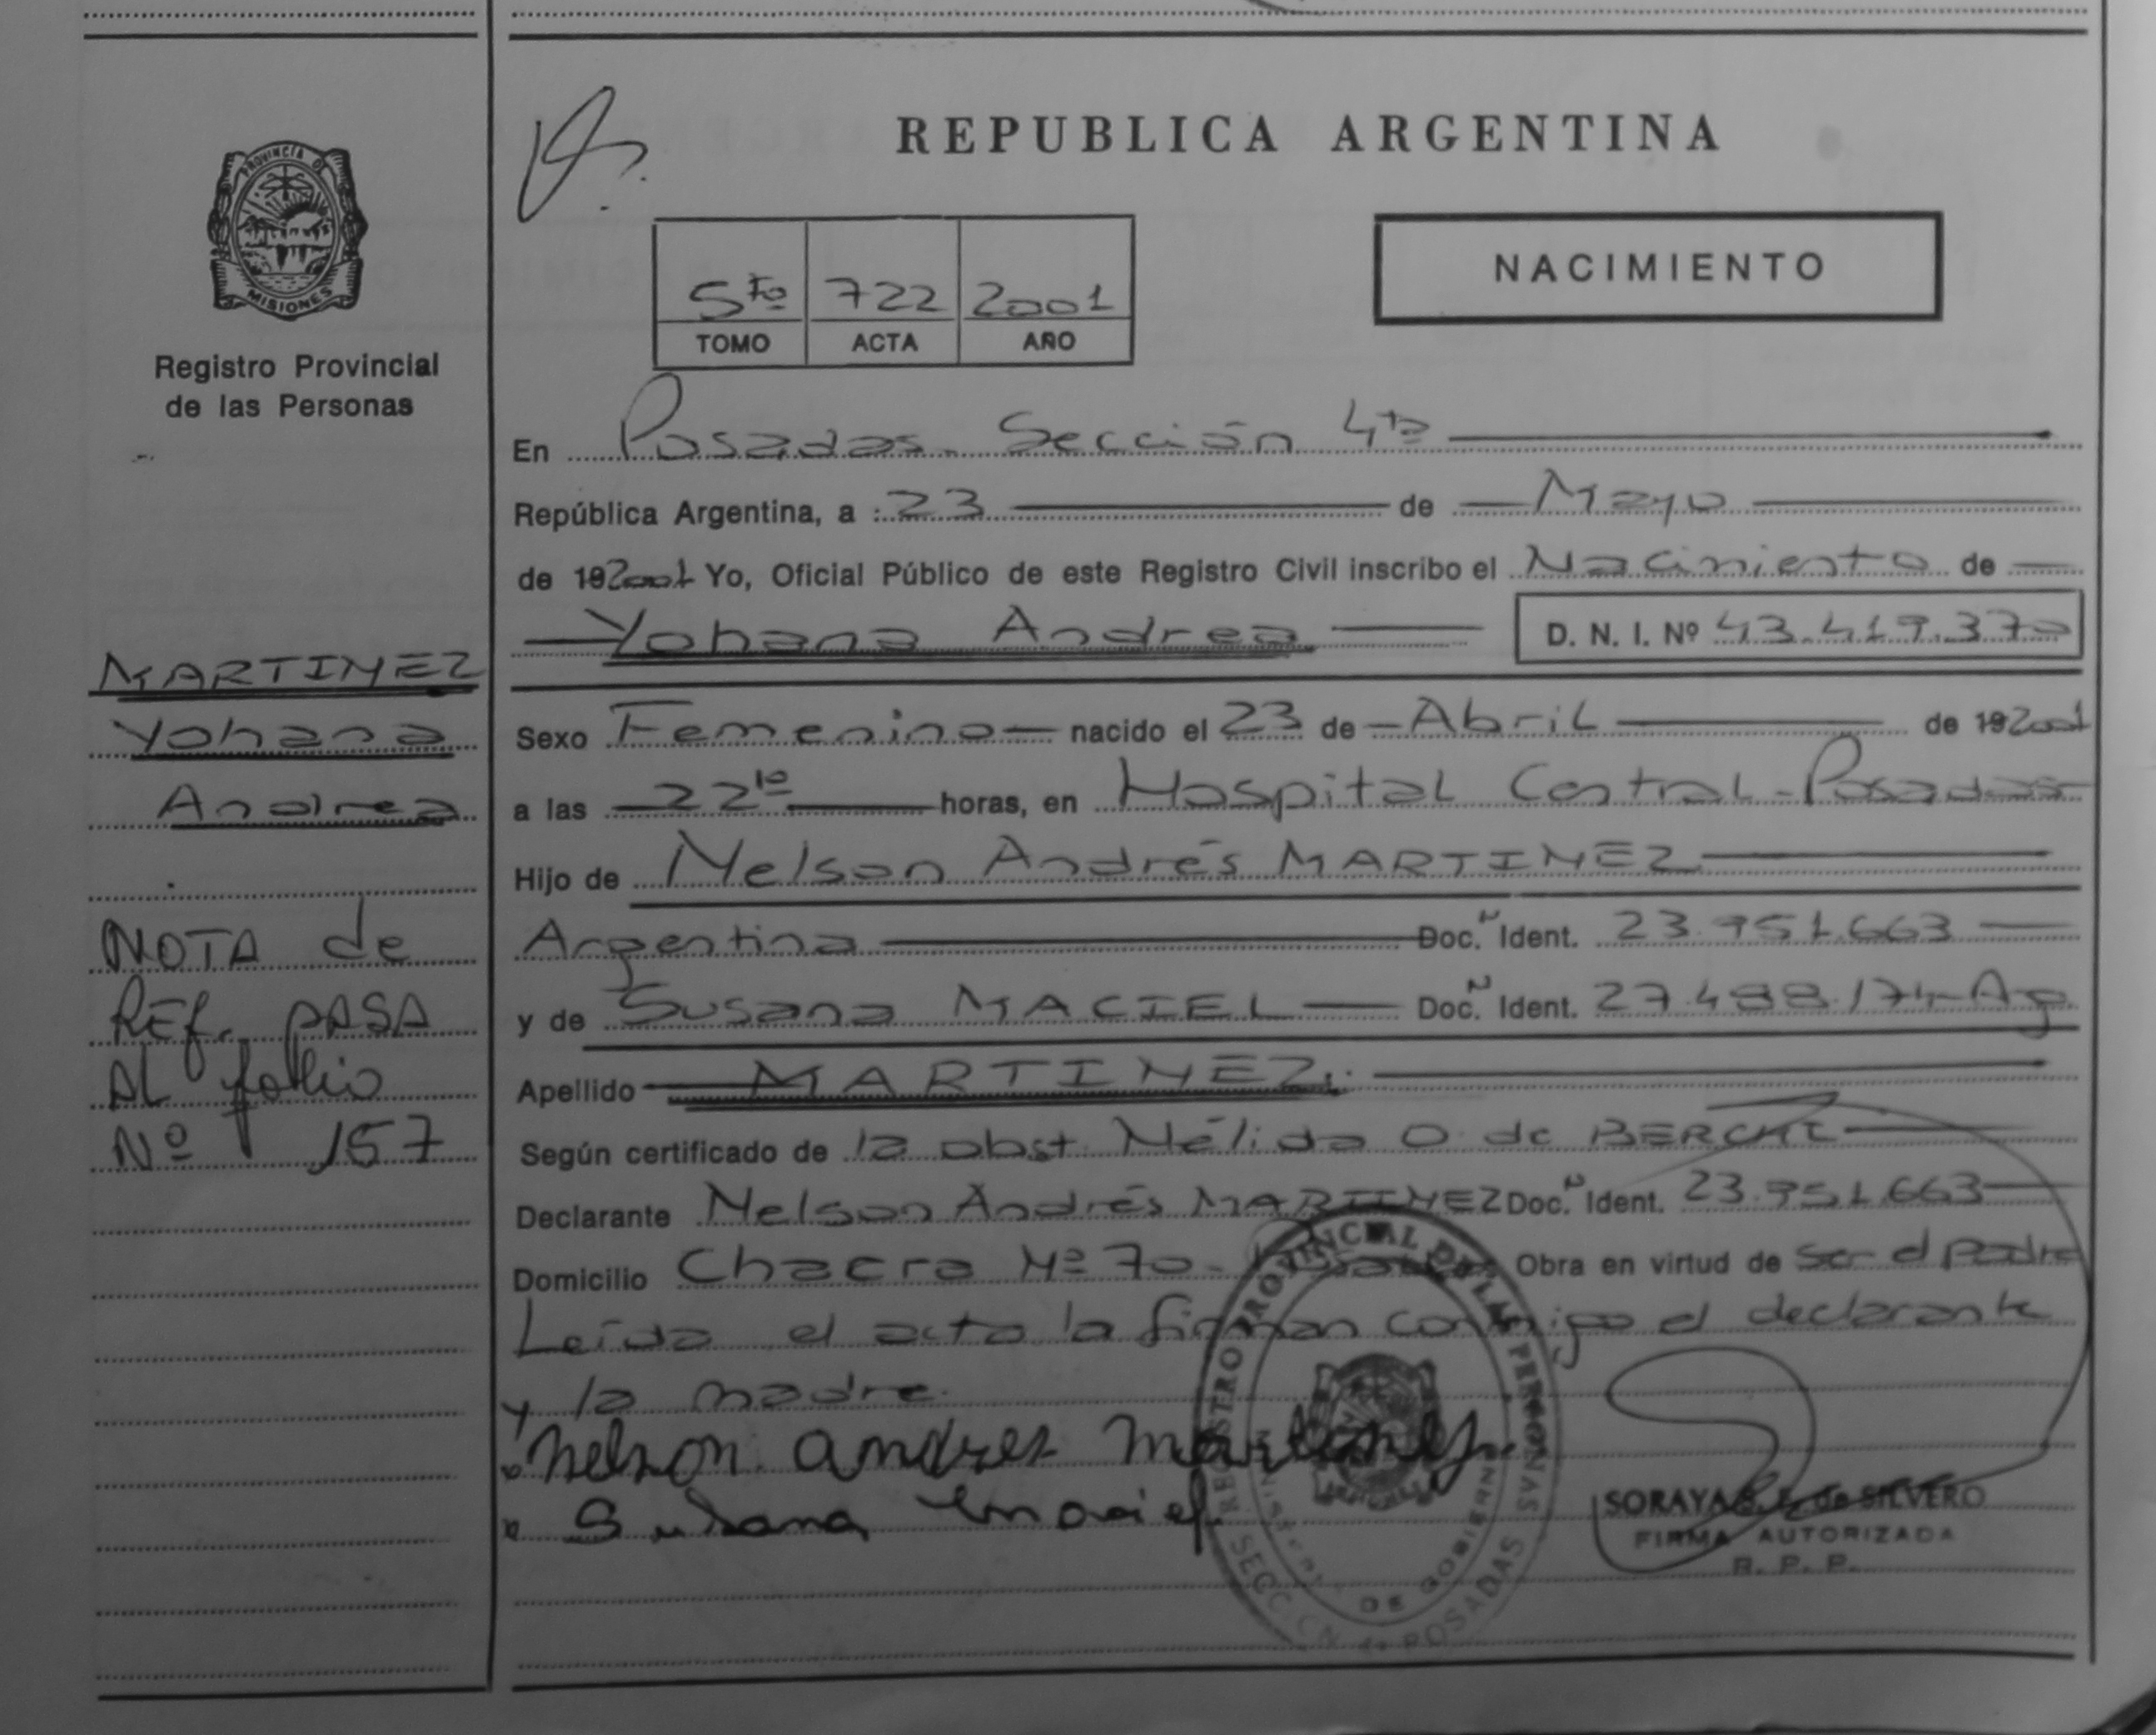 PROVINCIA D
MISIONES
Registro Provincial
de las Personas
MARTINEZ
Yohana
Andrea
NOTA de
REf. PASA
AL folio
Nº 157
REPUBLICA ARGENTINA
NACIMIENTO
5to 722 2001
TOMO ACTA AÑO
En Posadas - Sección 4ta
República Argentina, a 23 de Mayo
de 192001 Yo, Oficial Público de este Registro Civil inscribo el Nacimiento de
Yohana Andrea D. N. I. Nº 43.419.370
Sexo Femenino nacido el 23 de Abril de 192001
a las 22 10 horas, en Hospital Central - Posadas
Hijo de Nelson Andrés MARTINEZ
Argentina Doc. Ident. 23.951.663
y de Susana MACIEL Doc. Ident. 27.488.174-Ag.
Apellido MARTINEZ.
Según certificado de la obst. Nélida O. de
Declarante Nelson Andrés MARTINEZ Doc. Ident. 23.951.663
Domicilio Chacra Nº 70 - Obra en virtud de ser el padre
Leída el acta la firman conmigo el declarante
y la madre.
Nelson andres Martinez
Susana maciel
REGISTRO PROVINCIAL DE LAS PERSONAS
MINISTERIO DE GOBIERNO
SECCION 4a POSADAS
SORAYA de SILVERO
FIRMA AUTORIZADA
R. P. P.